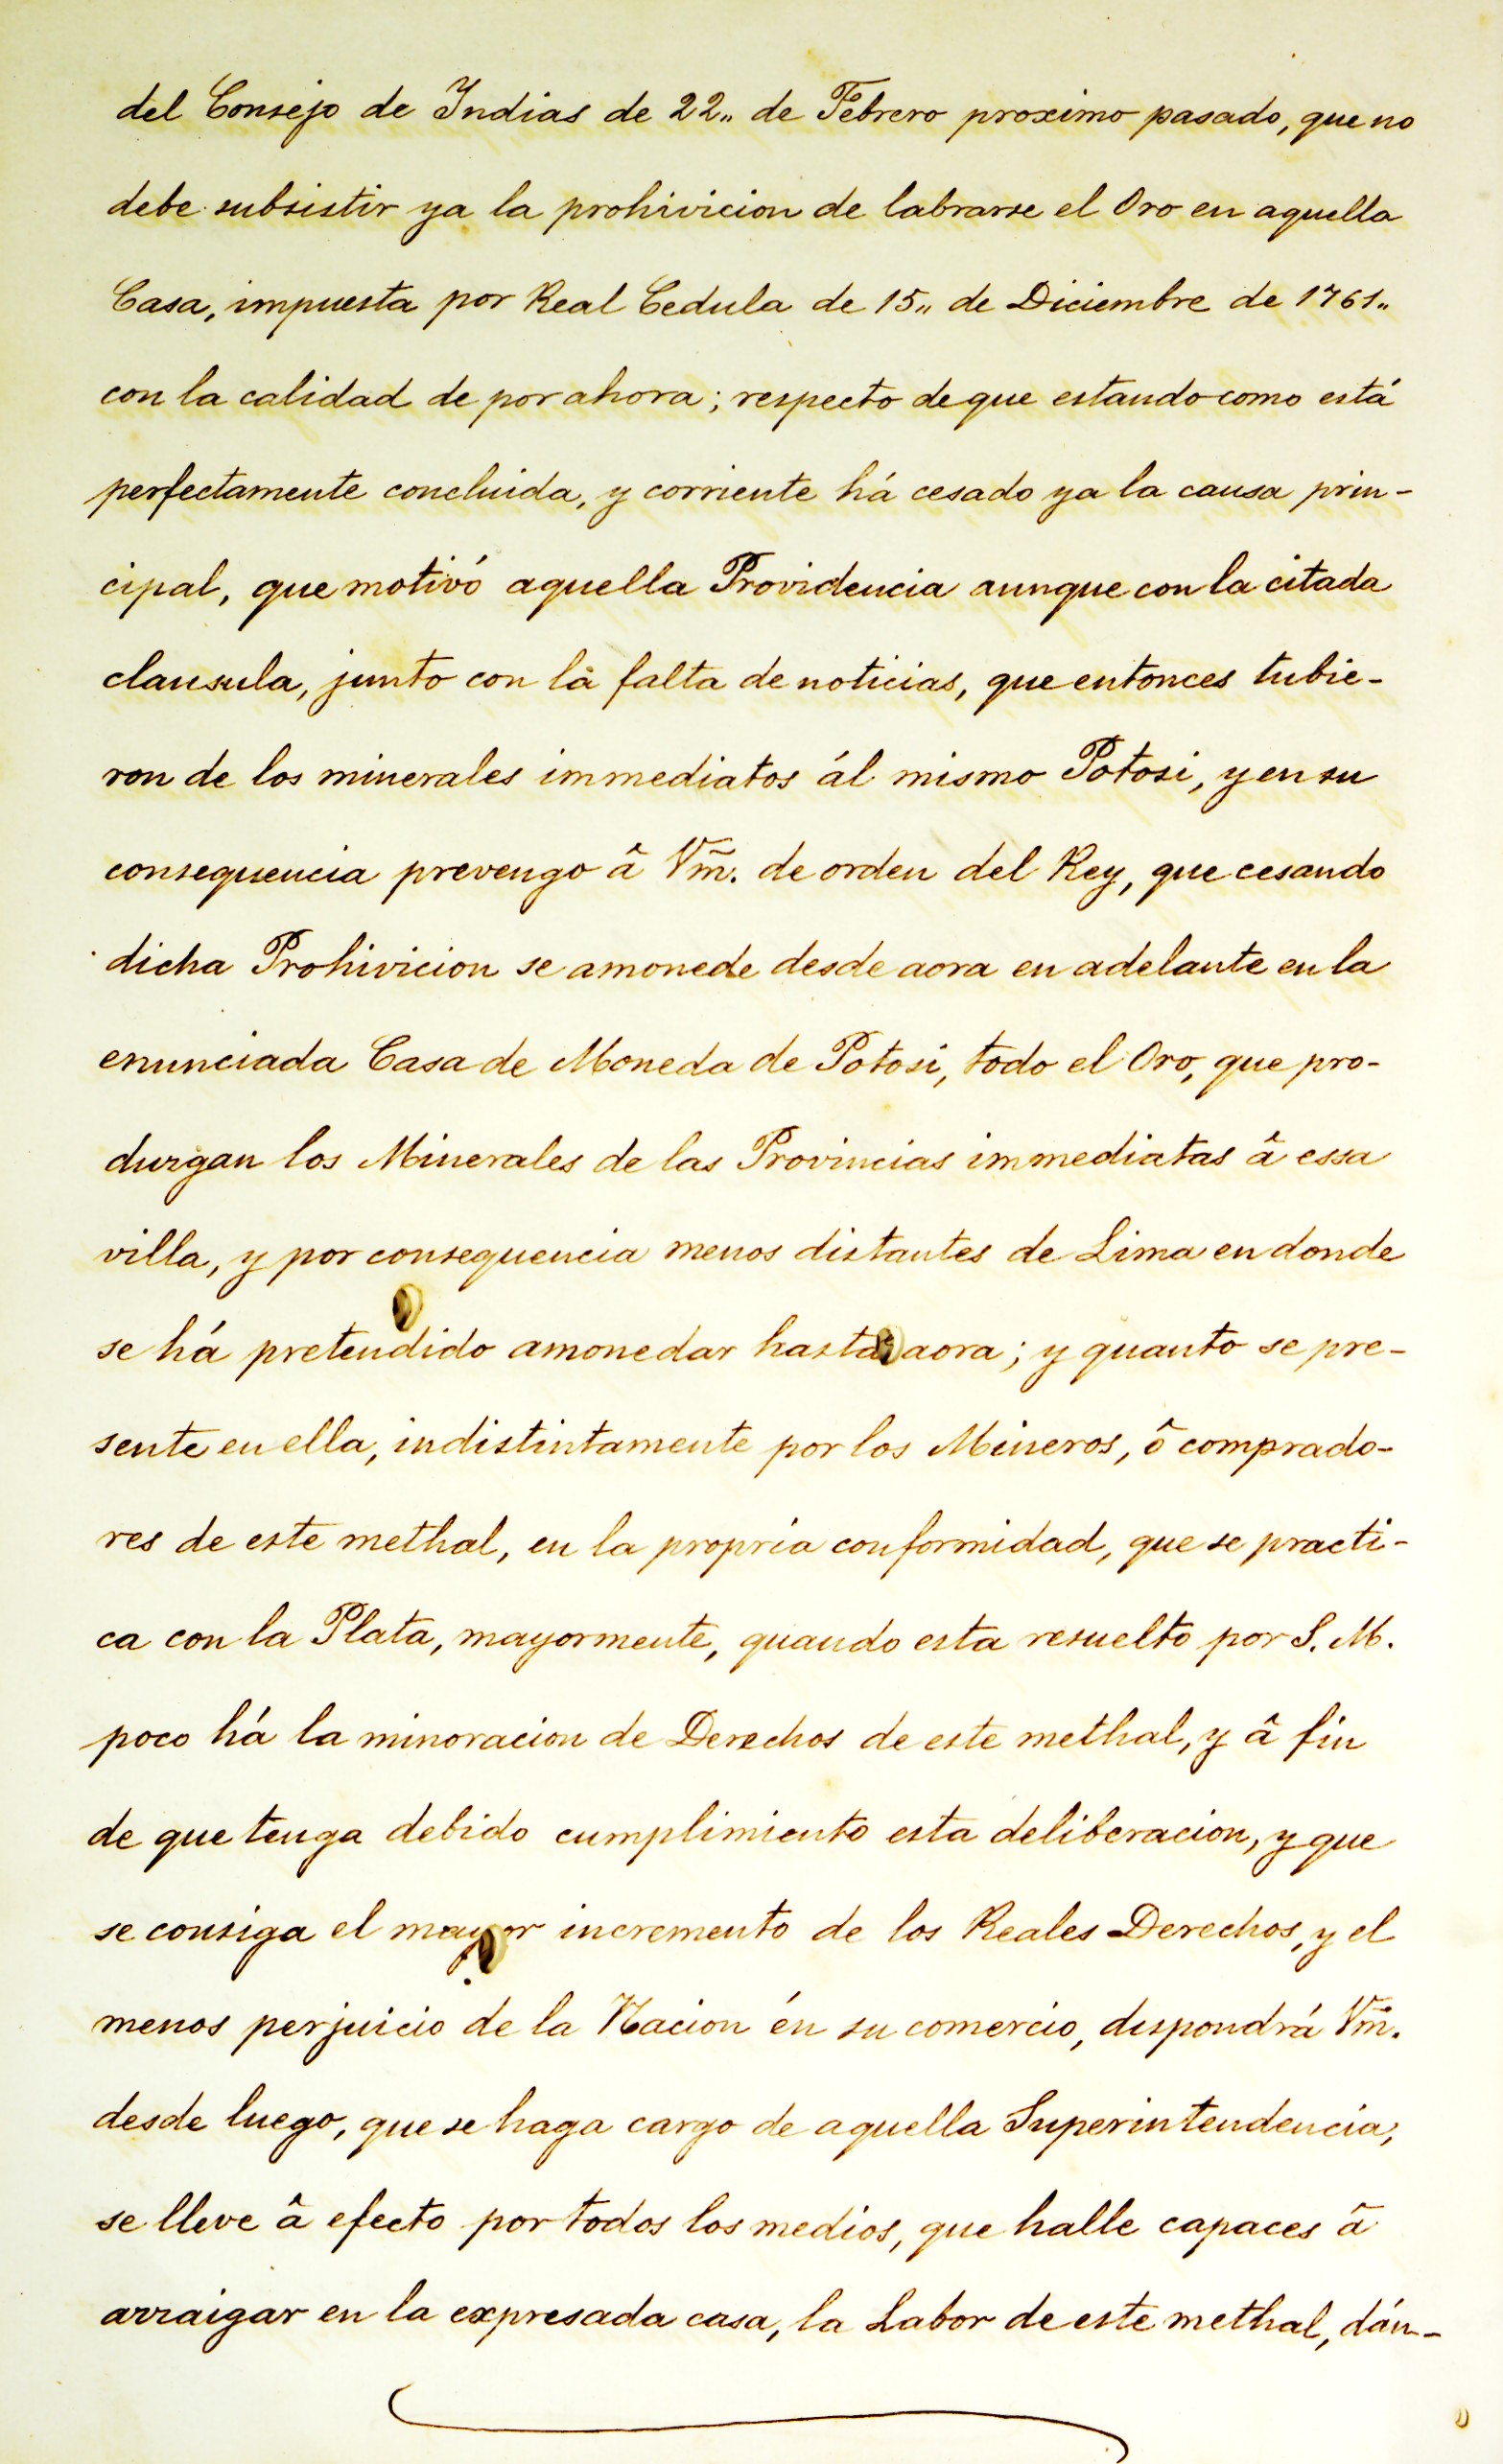 del Consejo de Yndias de 22,, de Febrero proximo pasado, que no
debe subsistir ya la prohivicion de labrarse el Oro en aquella
Casa, impuesta por Real Cedula de 15,, de Diciembre de 1761,,
con la calidad de por ahora; respecto de que estando como está
perfectamente concluida, y corriente há cesado ya la causa prin-
cipal, que motivó aquella Providencia aunque con la citada
clausula, junto con la falta de noticias, que entonces tubie-
ron de los minerales immediatos ál mismo Potosi, y en su
consequencia prevengo â Vm̃. de orden del Rey, que cesando
dicha Prohivicion se amonede desde aora en adelante en la
enunciada Casa de Moneda de Potosi, todo el Oro, que pro-
duzgan los Minerales de las Provincias immediatas â essa
villa, y por consequencia menos distantes de Lima en donde
se há pretendido amonedar hasta aora; y quanto se pre-
sente en ella, indistintamente por los Mineros, ô comprado-
res de este methal, en la propria conformidad, que se practi-
ca con la Plata, mayormente, quando esta resuelto por S. M.
poco há la minoracion de Derechos de este methal, y â fin
de que tenga debido cumplimiento esta deliberacion, y que
se consiga el mayor incremento de los Reales Derechos, y el
menos perjuicio de la Nacion én su comercio, dispondrá Vm̃.
desde luego, que se haga cargo de aquella Superintendencia,
se lleve â efecto por todos los medios, que halle capaces â
arraigar en la expresada casa, la Labor de este methal, dán-